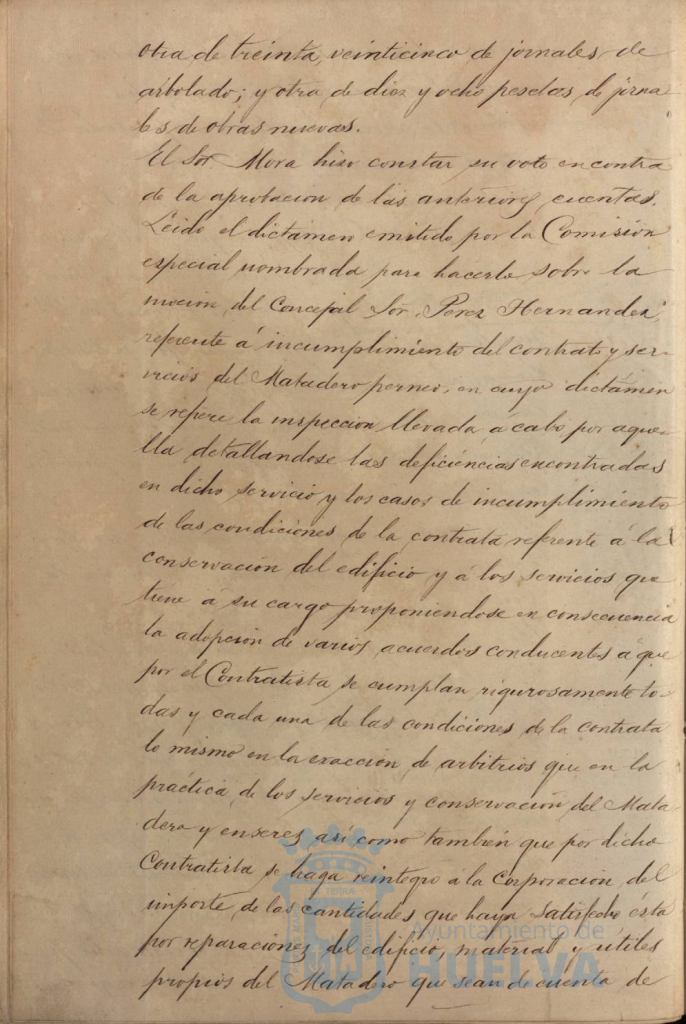 otra de treinta, veinticinco de jornales de
arbolado; y otra de diez y ocho pesetas de jorna
les de obras nuevas.
El Sor. Mora hizo constar su voto en contra
de la aprobacion de las anteriores cuentas.
Leido el dictámen emitido por la Comisión
especial nombrada para hacerlo sobre la
mocion del Concejal Sor. Perez Hernandez,
referente á incumplimiento del contrato y ser-
vicios del Matadero perneo, en cuyo dictámen
se refiere la inspeccion llevada á cabo por aque-
lla detallandose las deficiencias encontradas
en dicho servicio y los casos de incumplimiento
de las condiciones de la contrata referente á la
conservación del edificio y á los servicios que
tiene á su cargo proponiendose en consecuencia
la adopción de varios acuerdos conducentes á que
por el Contratista se cumplan rigurosamente to-
das y cada una de las condiciones de la contrata
lo mismo en la exacción de arbitrios que en la
práctica de los servicios y conservación del Mata
dero y enseres así como también que por dicho
Contratista se haga reintegro á la Corporación del
importe de las cantidades que haya satisfecho ésta
por reparaciones del edificio, material y útiles
propios del Matadero que sean de cuenta de
Ayuntamiento de
HUELVA